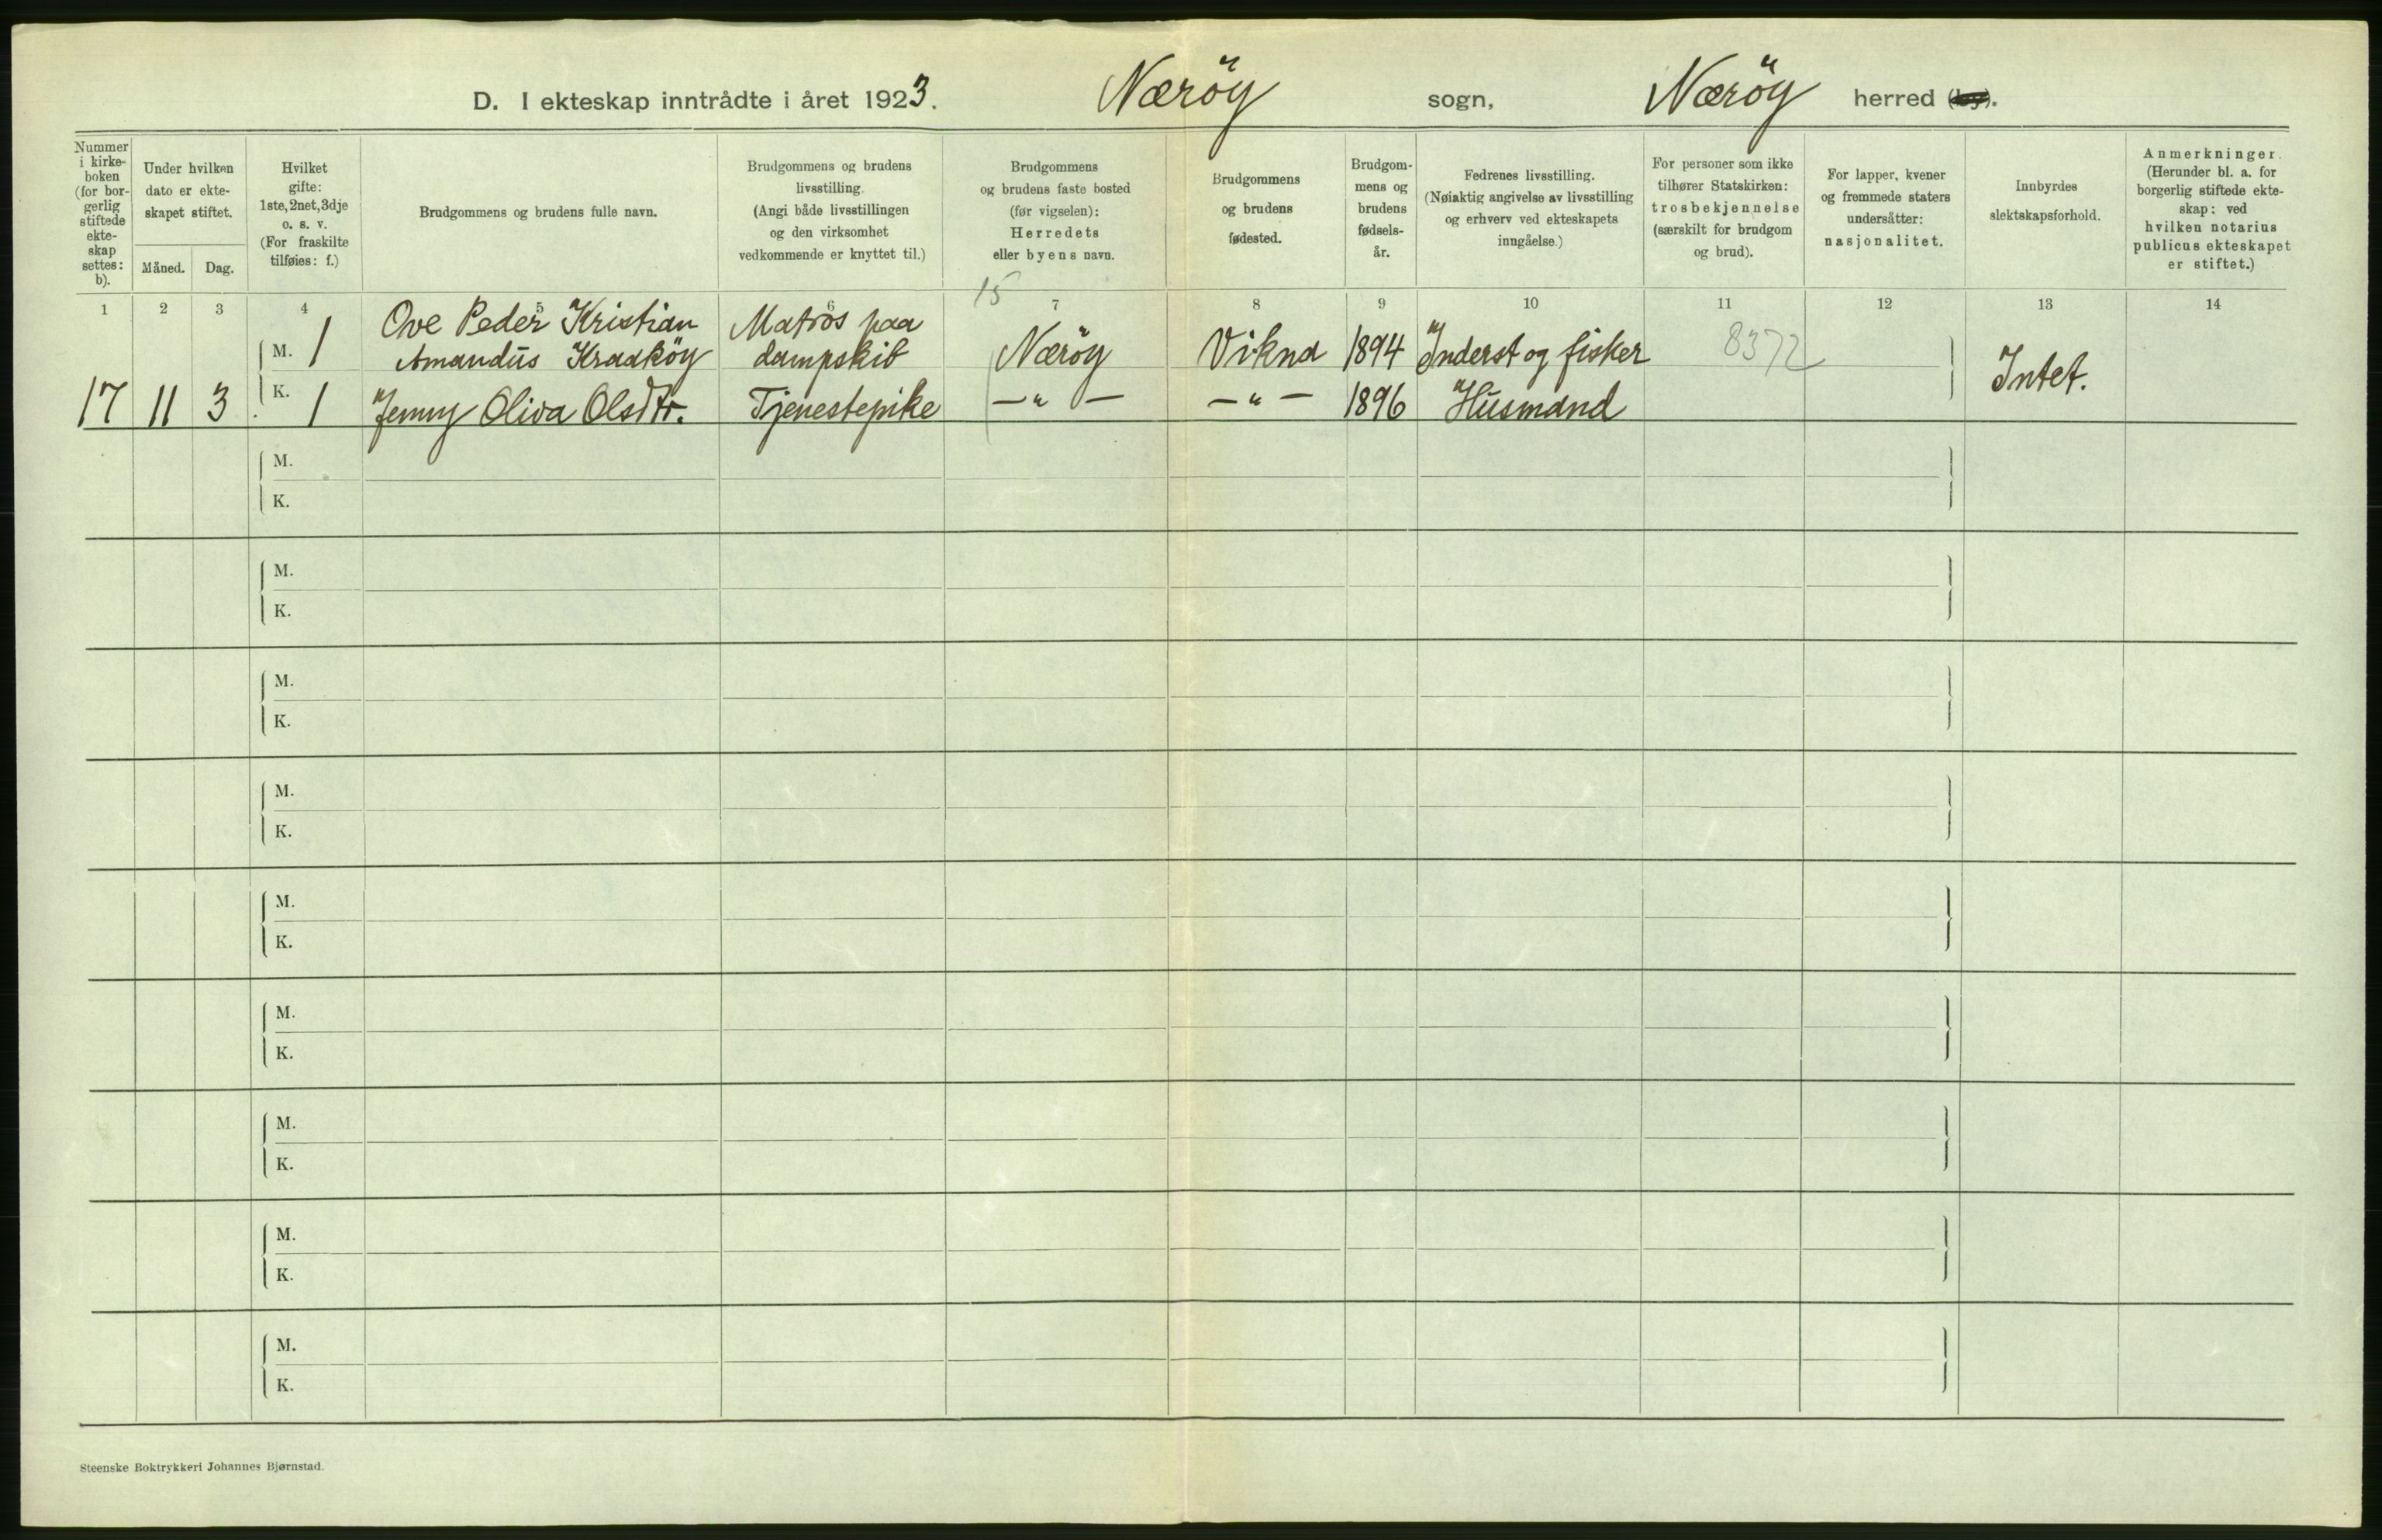 D. I ekteskap inntrådte i året 1923. Næröy sogn, Næröy herred (by).
Nummer
i kirke-
boken
(for bor-
gerlig
stiftede
ekte-
skap
settes:
b).
Under hvilken
dato er ekte-
skapet stiftet.
Måned. Dag.
Hvilket
gifte:
1ste, 2net, 3dje
o. s. v.
(For fraskilte
tilføies: f.)
Brudgommens og brudens fulle navn.
Brudgommens og brudens
livsstilling.
(Angi både livsstillingen
og den virksomhet
vedkommende er knyttet til.)
Brudgommens
og brudens faste bosted
(før vigselen):
Herredets
eller byens navn.
Brudgommens
og brudens
fødested.
Brudgom-
mens og
brudens
fødsels-
år.
Fedrenes livsstilling.
(Nøiaktig angivelse av livsstilling
og erhverv ved ekteskapets
inngåelse.)
For personer som ikke
tilhører Statskirken:
trosbekjennelse
(særskilt for brudgom
og brud).
For lapper, kvener
og fremmede staters
undersåtter:
nasjonalitet.
Innbyrdes
slektskapsforhold.
Anmerkninger.
(Herunder bl. a. for
borgerlig stiftede ekte-
skap: ved
hvilken notarius
publicus ekteskapet
er stiftet.)
15
1 2 3 4 5 6 7 8 9 10 11 12 13 14
Ove Peder Kristian Matros paa
M. 1 Amandus Kraaköy dampskib Næröy Vikna 1894 Inderst og fisker 8372
Intet.
17 11 3 K. 1 Jenny Oliva Olsdtr. Tjenestepike — " — — " — 1896 Husmand
M.
K.
M.
K.
M.
K.
M.
K.
M.
K.
M.
K.
M.
K.
M.
K.
M.
K.
Steenske Boktrykkeri Johannes Bjørnstad.